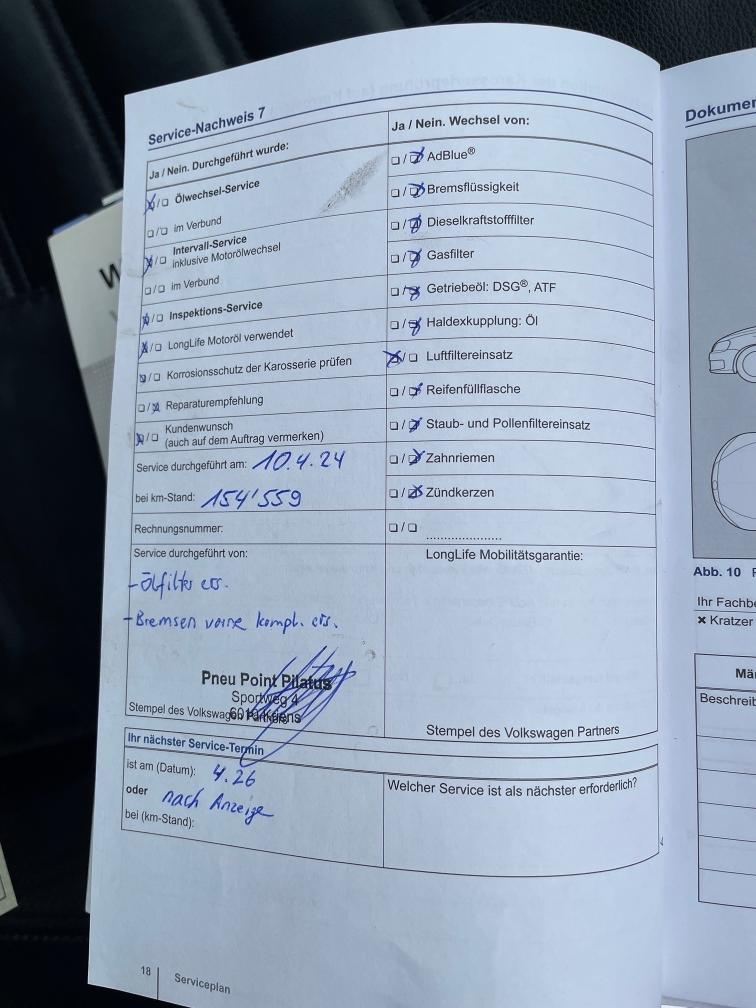 Service-Nachweis 7
Ja / Nein. Durchgeführt wurde:
Ölwechsel-Service
im Verbund
Intervall-Service
inklusive Motorölwechsel
im Verbund
Inspektions-Service
LongLife Motoröl verwendet
Korrosionsschutz der Karosserie prüfen
Reparaturempfehlung
Kundenwunsch
(auch auf dem Auftrag vermerken)
Service durchgeführt am: 10.4.24
bei km-Stand: 154'559
Rechnungsnummer:
Service durchgeführt von:
- Ölfilter ers.
- Bremsen vorne kompl. ers.
Pneu Point Pilatus
Sportweg 4
Stempel des Volkswagen Partners
Ja / Nein. Wechsel von:
AdBlue®
Bremsflüssigkeit
Dieselkraftstofffilter
Gasfilter
Getriebeöl: DSG®, ATF
Haldexkupplung: Öl
Luftfiltereinsatz
Reifenfüllflasche
Staub- und Pollenfiltereinsatz
Zahnriemen
Zündkerzen
LongLife Mobilitätsgarantie:
Stempel des Volkswagen Partners
Ihr nächster Service-Termin
ist am (Datum): 4.26
oder nach Anzeige
bei (km-Stand):
Welcher Service ist als nächster erforderlich?
18 Serviceplan
Abb. 10
Ihr
× Kratzer